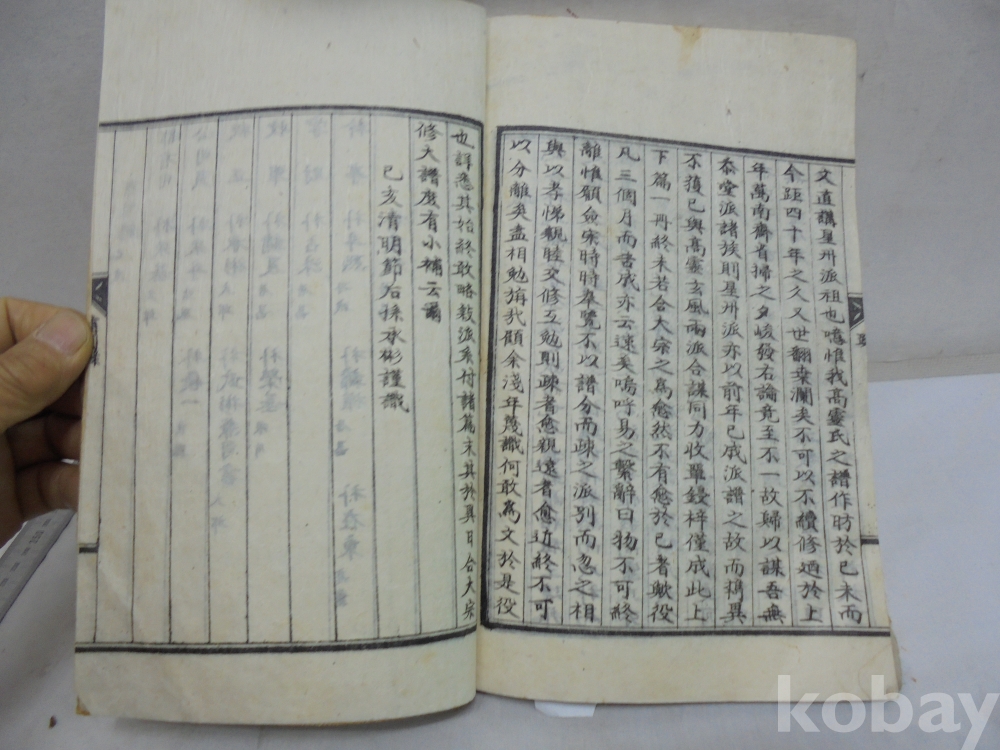 文直講星州派祖也噫惟我高靈氏之譜作昉於己未而
今距四十年之久又世翻桑瀾矣不可以不續修迺於上
年萬南齋省掃之夕峻發石論竟至不一故歸以謀吾無
忝堂派諸族則星州派亦以前年已成派譜之故而携異
不獲已與高靈玄風兩派合謀同力收單鋟梓僅成此上
下篇一冊終未若合大宗之為愈然不有愈於已者歟役
凡三個月而告成亦云速矣嗚呼易之繫辭曰物不可終
離惟願僉宗時時奉覽不以譜分而疎之派別而忽之相
與以孝悌親睦交修互勉則疎者愈親遠者愈近終不可
以分離矣盍相勉旃哉顧余淺年蔑識何敢為文於是役
也詳悉其始終敢略敍派系付諸篇末其於異日合大宗
修大譜庶有小補云爾
己亥清明節后採承彬謹識
kobay